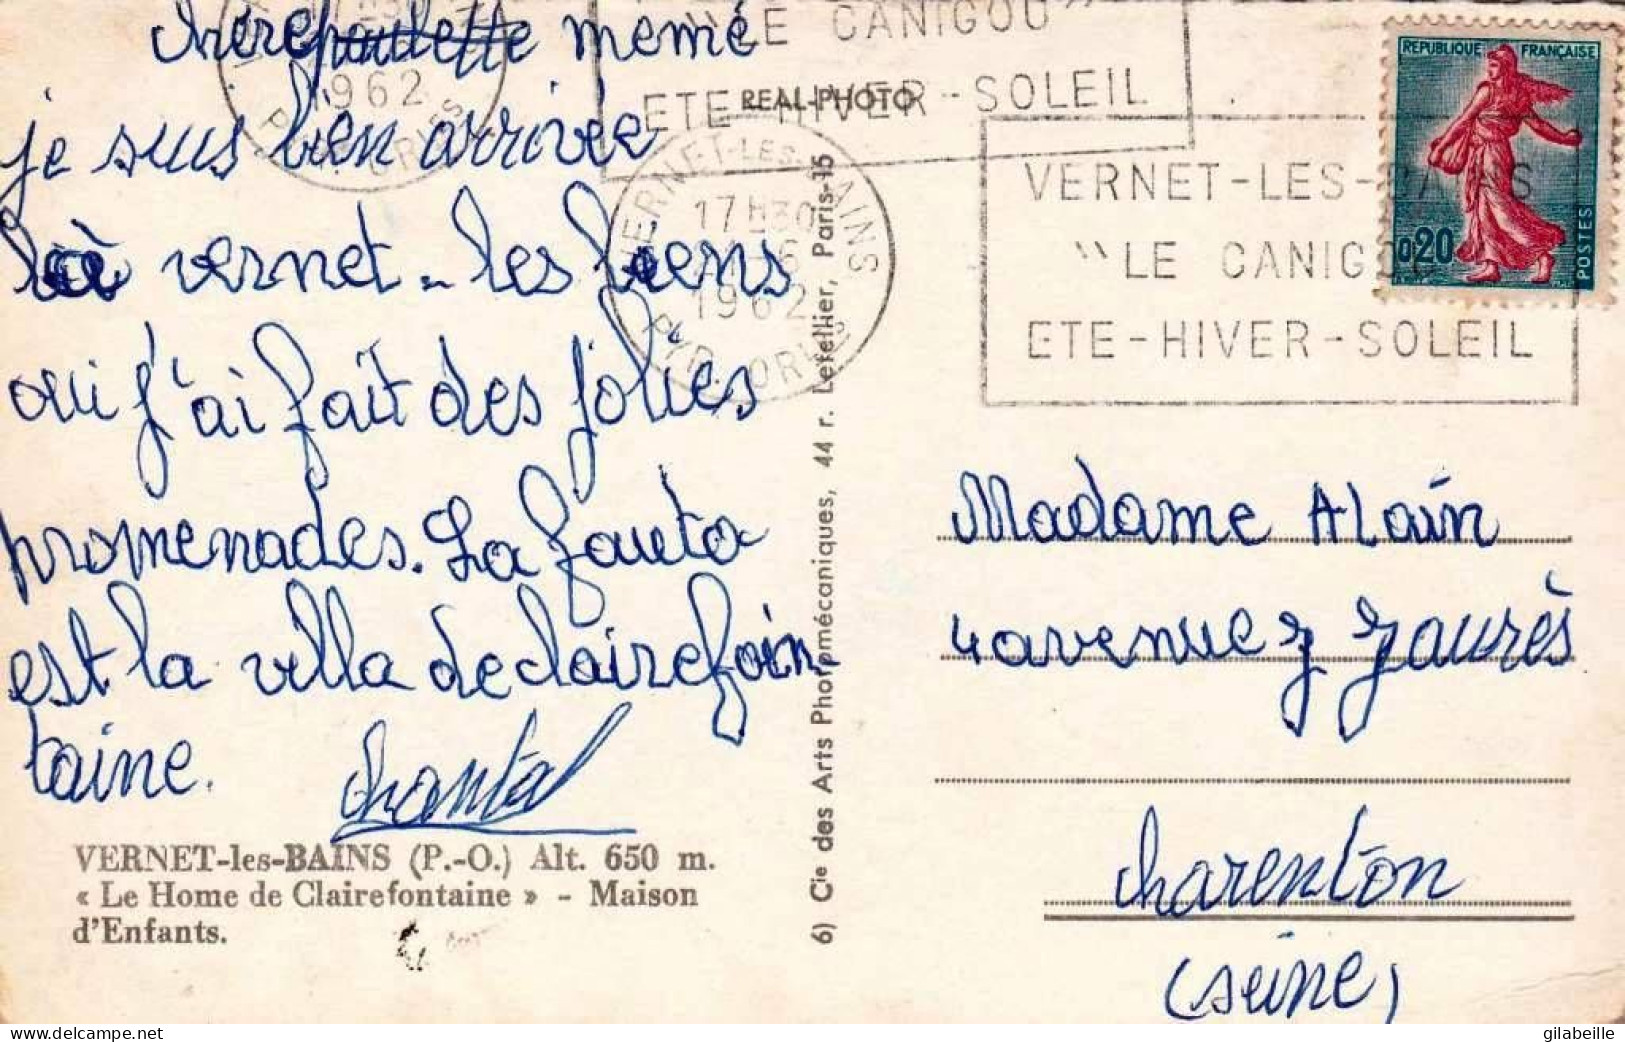 chère paulette memé
je suis bien arrivée
à vernet-les biens
oui j'ai fait des jolies
promenades. La fauto
est la villa de clairefoin
taine. chantal
VERNET-les-BAINS (P.-O.) Alt. 650 m.
« Le Home de Clairefontaine » - Maison
d'Enfants.
1962
"LE CANIGOU"
ETE-HIVER-SOLEIL
REAL-PHOTO
VERNET-LES-BAINS
17H30
1962
PYR. ORLES
VERNET-LES-BAINS
"LE CANIGOU
ETE-HIVER-SOLEIL
REPUBLIQUE FRANÇAISE
0,20
POSTES
6) Cie des Arts Photomécaniques, 44 r. Letellier, Paris-15
Madame Alain
4 avenue J Jaurès
charenton
(seine)
gilabeille